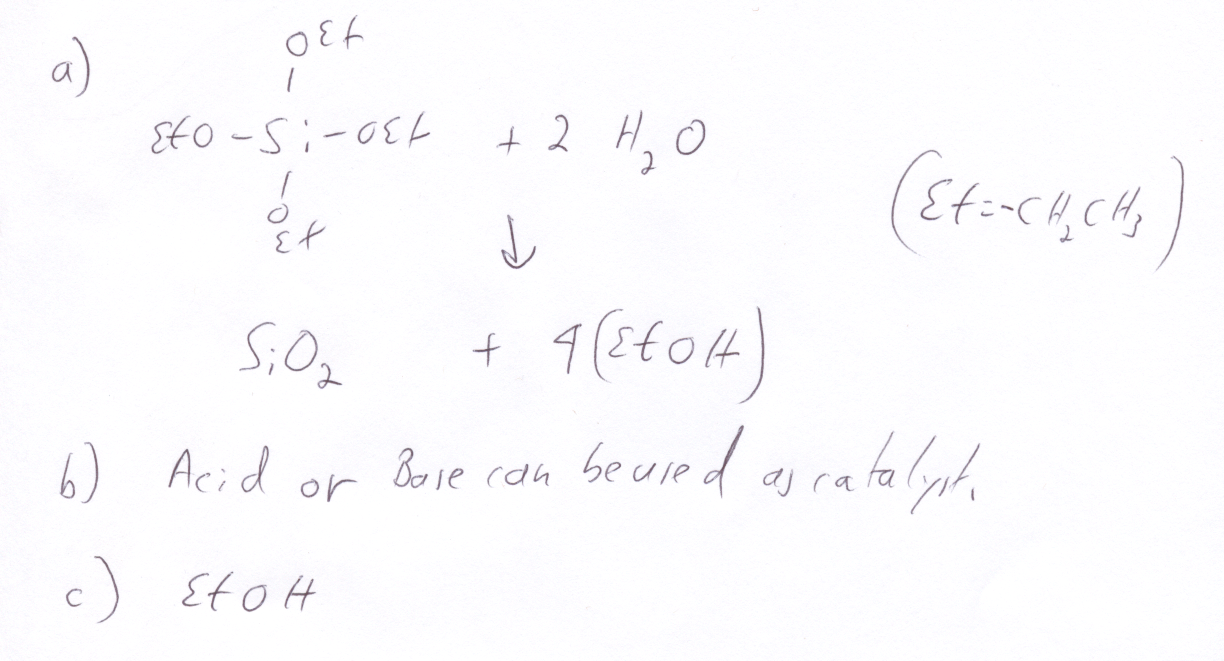 a)
OEt
|
EtO-Si-OEt + 2 H₂O
|
O
Et
(Et=-CH₂CH₃)
↓
SiO₂ + 4(EtOH)
b) Acid or Base can be used as catalyst.
c) EtOH